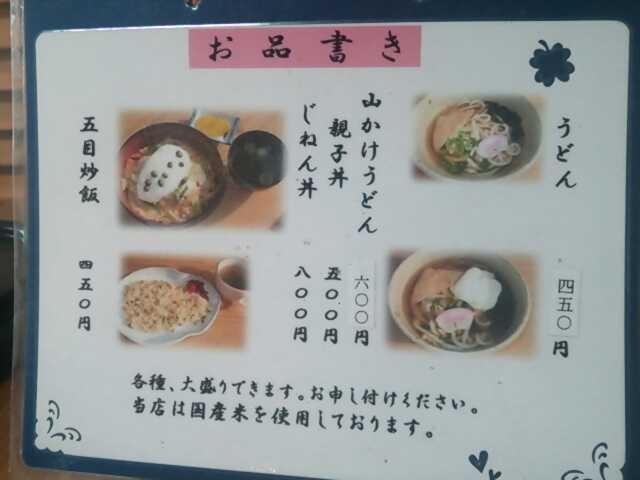 お品書き
うどん
四五〇円
山かけうどん
六〇〇円
親子丼
五〇〇円
じねん丼
八〇〇円
五目炒飯
四五〇円
各種、大盛りできます。お申し付けください。
当店は国産米を使用しております。